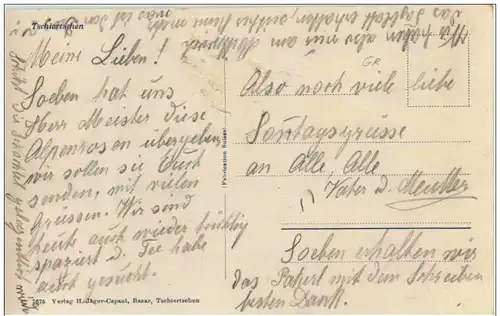 Tschiertschen
Meine Lieben!
Soeben hat uns
Herr Meister diese
Alpenrosen übergeben
wir sollen sie Euch
senden, mit vielen
Grüssen. Wir sind
heute auch wieder tüchtig
spaziert u. Tee habe
auch gesucht.
1675 Verlag H. Jäger-Capaul, Bazar, Tschiertschen
(Fabrication Suisse)
GR
Also noch viele liebe
Sontagsgrüsse
an Alle, Alle
Vater u. Mutter
Soeben erhalten wir
das Paket mit dem Schreiben
besten Dank.